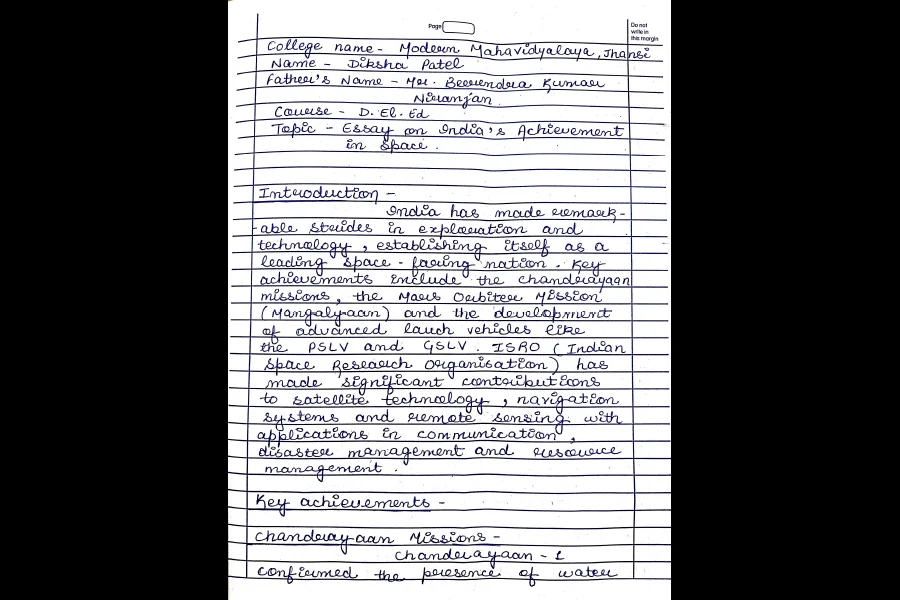 Page
Do not
write in
this margin
College name - Modern Mahavidyalaya, Jhansi
Name - Diksha Patel
Father's Name - Mr. Beerendra Kumar
Niranjan
Course - D. El. Ed
Topic - Essay on India's Achievement
in Space.
Introduction -
India has made remark-
-able strides in exploration and
technology, establishing itself as a
leading space-faring nation. Key
achievements include the chandrayaan
missions, the Mars Orbiter Mission
(Mangalyaan) and the development
of advanced lauch vehicles like
the PSLV and GSLV. ISRO (Indian
Space Research Organisation) has
made significant contributions
to satellite technology, navigation
systems and remote sensing with
applications in communication,
disaster management and resource
management.
Key achievements -
Chandrayaan Missions -
Chandrayaan - 1
confirmed the presence of water